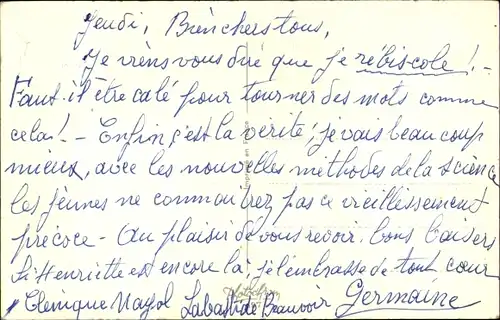 Jeudi, Bien chers tous,
Je viens vous dire que je rébiscole ! -
Faut-il être calé pour tourner des mots comme
cela ! - Enfin, c'est la vérité, je vais beaucoup
mieux, avec les nouvelles méthodes de la science
les jeunes ne connaitrez pas ce vieillissement
précoce - Au plaisir de vous revoir. bons baisers
Si Henriette est encore là, je l'embrasse de tout cœur
Clinique Labastide Beauvoir Germaine